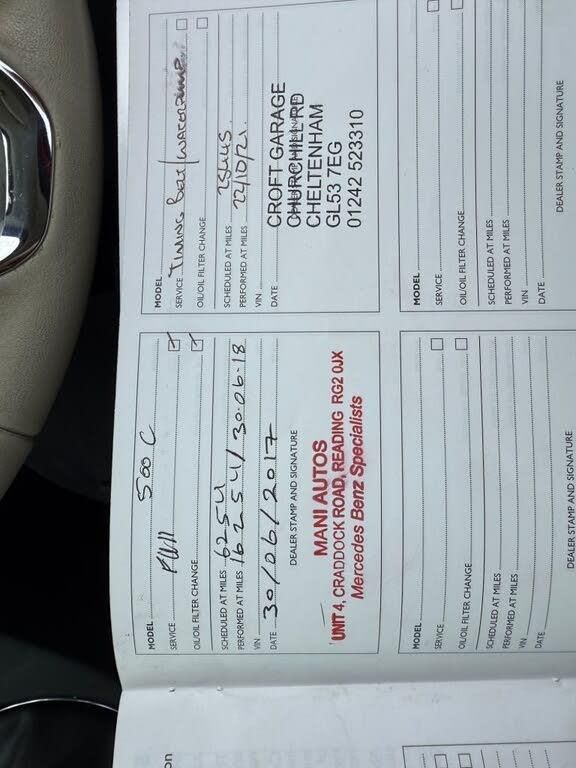 MODEL 500 C
SERVICE Full
OIL/OIL FILTER CHANGE
SCHEDULED AT MILES 6254
PERFORMED AT MILES 16254/30-06-18
VIN
DATE 30/06/2017
DEALER STAMP AND SIGNATURE
MANI AUTOS
UNIT 4, CRADDOCK ROAD, READING RG2 0JX
Mercedes Benz Specialists
MODEL
SERVICE TIMING Belt/WATER PUMP
OIL/OIL FILTER CHANGE
SCHEDULED AT MILES
PERFORMED AT MILES 22/10/21.
VIN
DATE
CROFT GARAGE
CHURCHILL RD
CHELTENHAM
GL53 7EG
01242 523310
MODEL
SERVICE
OIL/OIL FILTER CHANGE
SCHEDULED AT MILES
PERFORMED AT MILES
VIN
DATE
DEALER STAMP AND SIGNATURE
MODEL
SERVICE
OIL/OIL FILTER CHANGE
SCHEDULED AT MILES
PERFORMED AT MILES
VIN
DATE
DEALER STAMP AND SIGNATURE
on